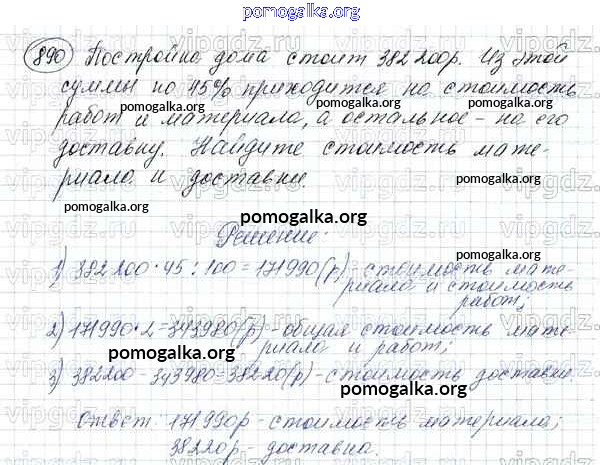 pomogalka.org
890 Постройка дома стоит 382 200р. Из этой
суммы по 45% приходится на стоимость
pomogalka.org pomogalka.org
работ и материала, а остальное - на его
доставку. Найдите стоимость мате-
pomogalka.org
риала и доставки.
pomogalka.org pomogalka.org
pomogalka.org
Решение:
1) 382 200 · 45 : 100 = 171990(р) - стоимость мате-
риала и стоимость
pomogalka.org
работ;
2) 171990 · 2 = 343980(р) - общая стоимость мате-
риала и работ;
pomogalka.org pomogalka.org
3) 382200 - 343980 = 38220(р) - стоимость доставки
pomogalka.org
Ответ: 171990р - стоимость материала;
38220р - доставка.
pomogalka.org